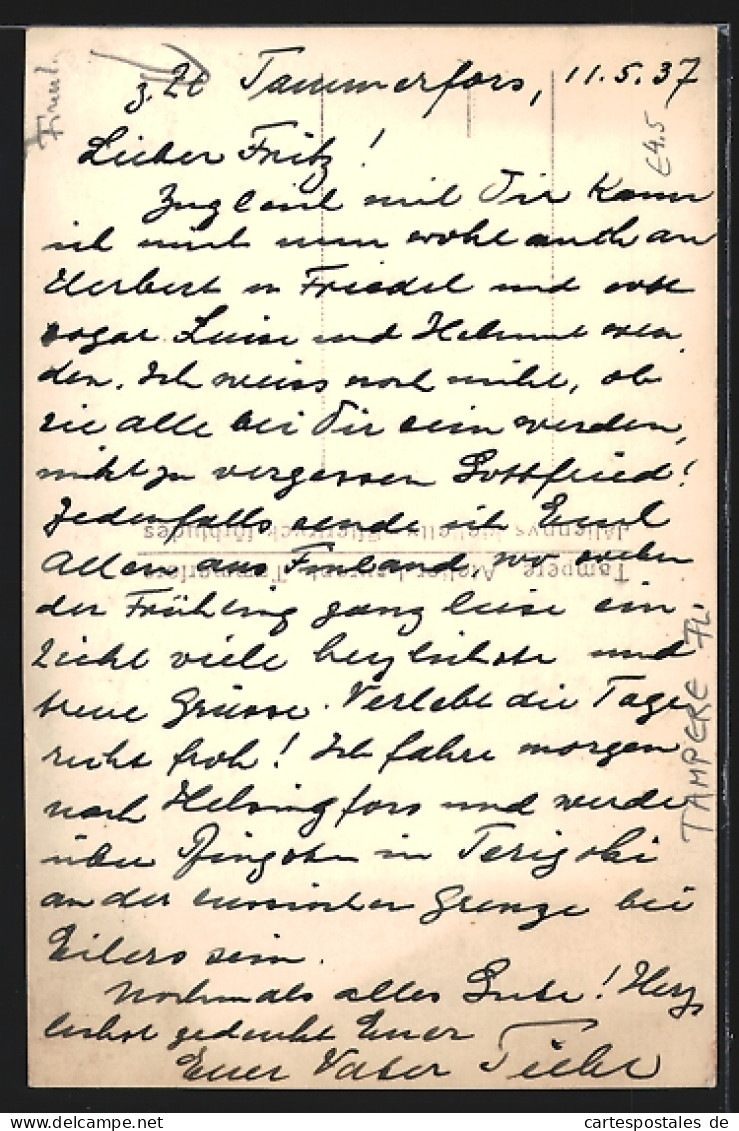 z. Zt Tammerfors, 11.5.37
Finnl.
€4.5
Lieber Fritz!
Zugleich mit Dir kann
ich mich nun wohl auch an
Herbert u Friedel und
sogar Luise und Helmut wen
den. Ich weiss noch nicht, ob
sie alle bei Dir sein werden,
nicht zu vergessen Gottfried!
Jedenfalls sende ich Euch
Allen aus Finland, wo
der Frühling ganz leise ein
zieht viele herzlichste und
treue Grüsse. Verlebt die Tage
recht froh! Ich fahre morgen
nach Helsingfors und werde
über Pfingsten in Terijoki
an der russischen Grenze bei
Eilers sein.
Nochmals alles Gute! Herz
lichst gedenkt Euer
Euer Vater
TAMPERE FI.
Jäljennys kielletty - Eftertryck förbjudes
Tampere Atelier Laurent Tammerfors
cartespostales de